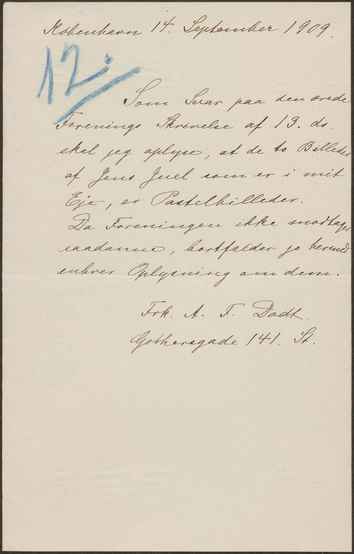 København 14. September 1909.
12.
Som Svar paa den ærede
Forenings Skrivelse af 13. ds.
skal jeg oplyse, at de to Billeder
af Jens Juel som er i mit
Eje, er Pastelbilleder.
Da Foreningen ikke modtager
saadanne, bortfalder jo hermed
enhver Oplysning om dem.
Frk. A. T. Dodt.
Gothersgade 141. St.